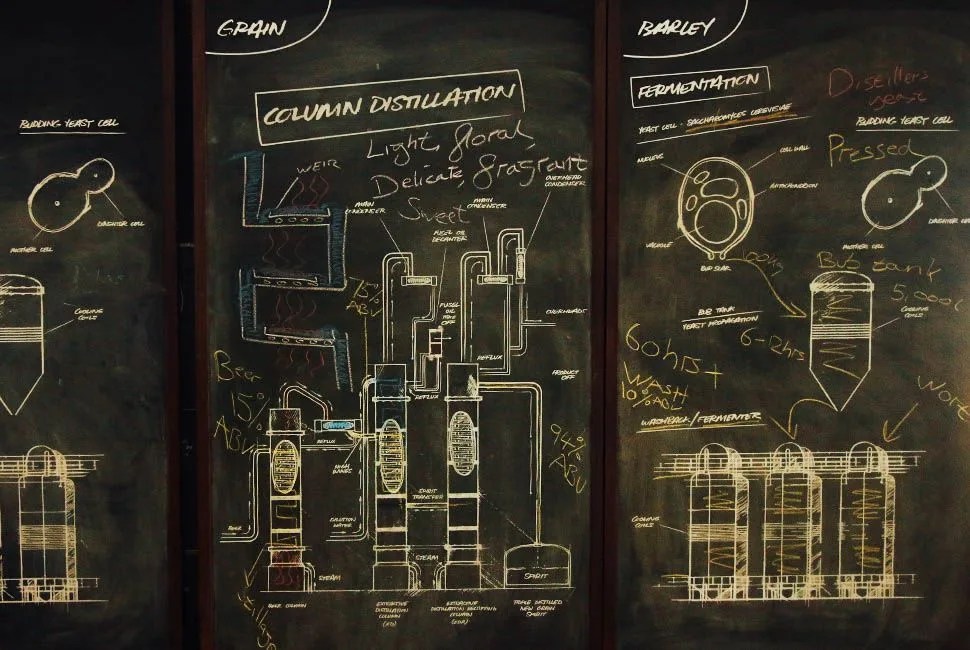 BUDDING YEAST CELL
DAUGHTER CELL
MOTHER CELL
COOLING
COILS
GRAIN
COLUMN DISTILLATION
Light, floral,
Delicate, fragrant
Sweet
WEIR
MAIN
CONDENSER
FUSEL OIL
DECANTER
MAIN
CONDENSER
OVERHEAD
CONDENSER
75%
ABV
FUSEL
OIL
TAKE
OFF
OVERHEADS
REFLUX
PRODUCT
OFF
REFLUX
Beer
15%
ABV
REFLUX
HIGH
WINES
94%
ABV
SPIRIT
TRANSFER
BEER
DILUTION
WATER
STEAM
STEAM
SPIRIT
BEER COLUMN
EXTRACTIVE
DISTILLATION
COLUMN
EXTRACTIVE
DISTILLATION
COLUMN
TRIPLE DISTILLED
NEW GRAIN
SPIRIT
BARLEY
FERMENTATION
Distillers
yeast
YEAST CELL - SACCHAROMYCES CEREVISIAE
BUDDING YEAST CELL
Pressed
NUCLEUS
CELL WALL
MITOCHONDRION
VACUOLE
BUD SCAR
DAUGHTER CE
MOTHER CELL
100kg
Bub tank
5,000
COOLING
COILS
BUB TANK
YEAST PROPAGATION
6-12hrs
60hrs+
WASH
10% ABV
Wort
WASHBACK/FERMENTER
COOLING
COILS